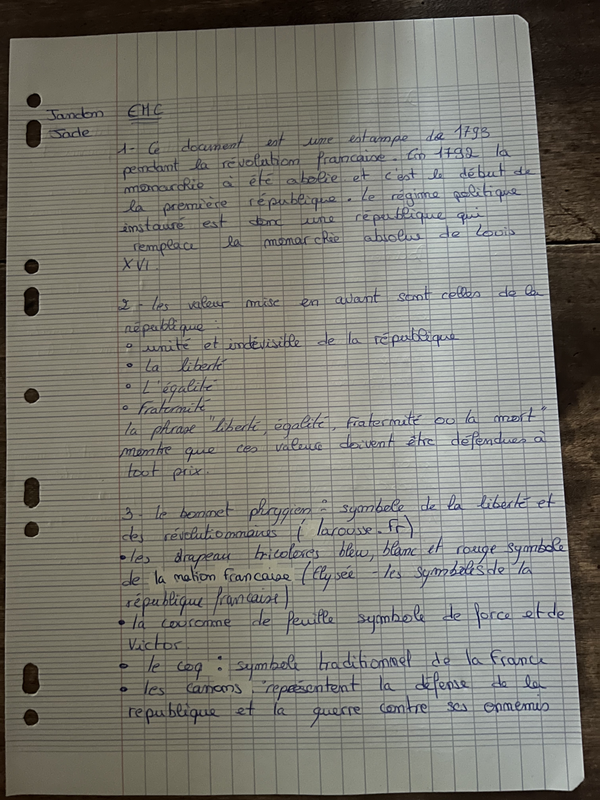 Jandon EMC
Jade
1- Ce document est une estampe de 1793
pendant la révolution francaise. En 1792 la
monarchie à été abolie et c'est le début de
la première république. Le régime politique
instauré est donc une république qui
remplace la monarchie absolue de Louis
XVI.
2 - les valeur mise en avant sont celles de la
république :
• unité et indévisible de la république
• La liberté
• L'égalité
• Fraternité
la phrase "liberté, égalité, Fraternité ou la mort"
montre que ces valeurs doivent être défendues à
tout prix.
3 - le bonnet phrygien : symbole de la liberté et
des révolutionnaires ( larousse.fr)
• les drapeau tricolores bleu, blanc et rouge symbole
de la nation francaise (Elysée - les symboles de la
république francaise)
• la couronne de feuille symbole de force et de
Victor.
• le coq : symbole traditionnel de la France
• les canons : représentent la défense de la
republique et la guerre contre ses ennemis